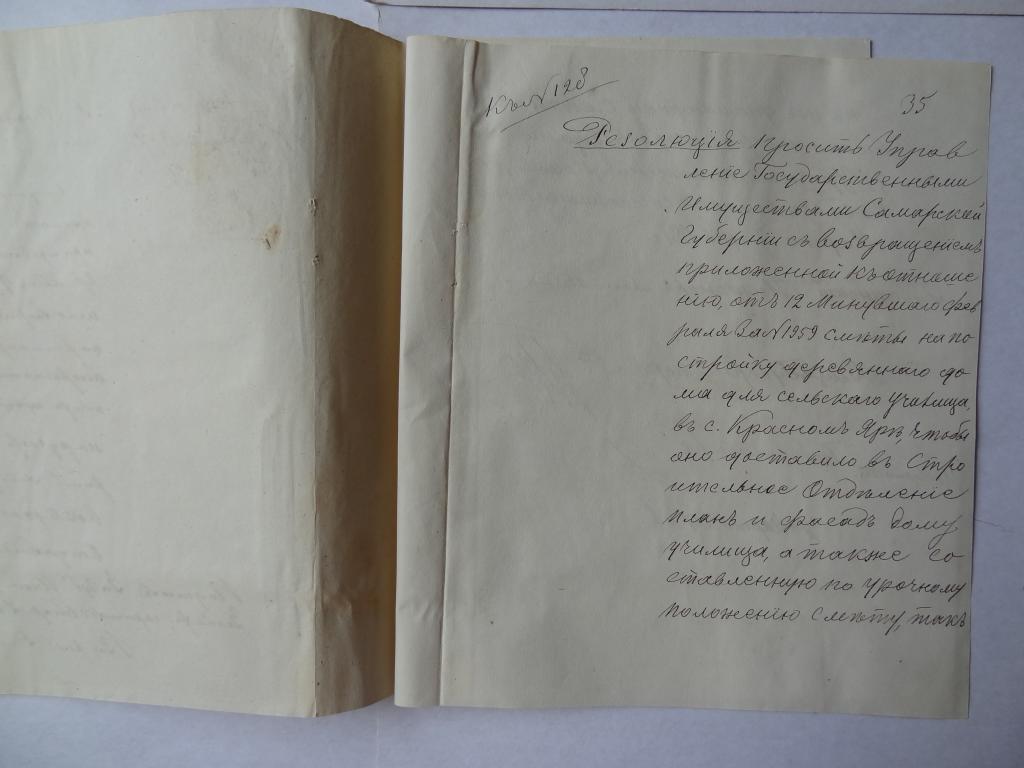 Къ № 128
35
Резолюція Просить Управ
леніе Государственными
Имуществами Самарской
Губерніи съ возвращеніемъ
приложенной къ отноше
нію, отъ 12 Минувшаго фев
раля За № 1959 смѣты на по
стройку деревяннаго до
ма для сельскаго училища,
въ с. Красномъ Ярѣ, чтобы
оно доставило въ Стро
ительное Отдѣленіе
планъ и фасадъ дому
училища, а также со
ставленную по урочному
положенію смѣту, такъ